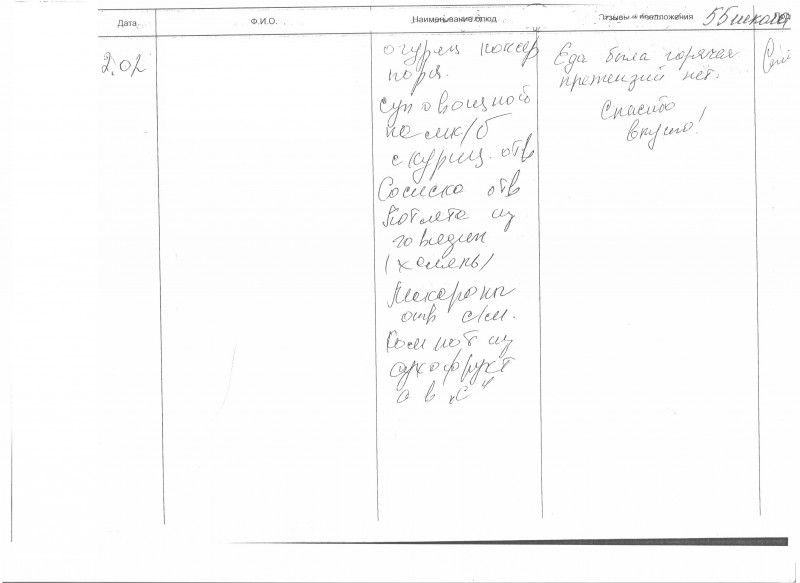 Дата Ф.И.О. Наименование блюд Отзывы и предложения 55 школа
2.02
огурец консер
порц.
Суп овощной
на мк/б
с куриц. отв
Сосиска отв
Котлета из
говядин
(халяль)
Макароны
отв с/м.
Компот из
сухофрукт
а в "С"
Еда была горячая
претензий нет.
Спасибо
вкусно!